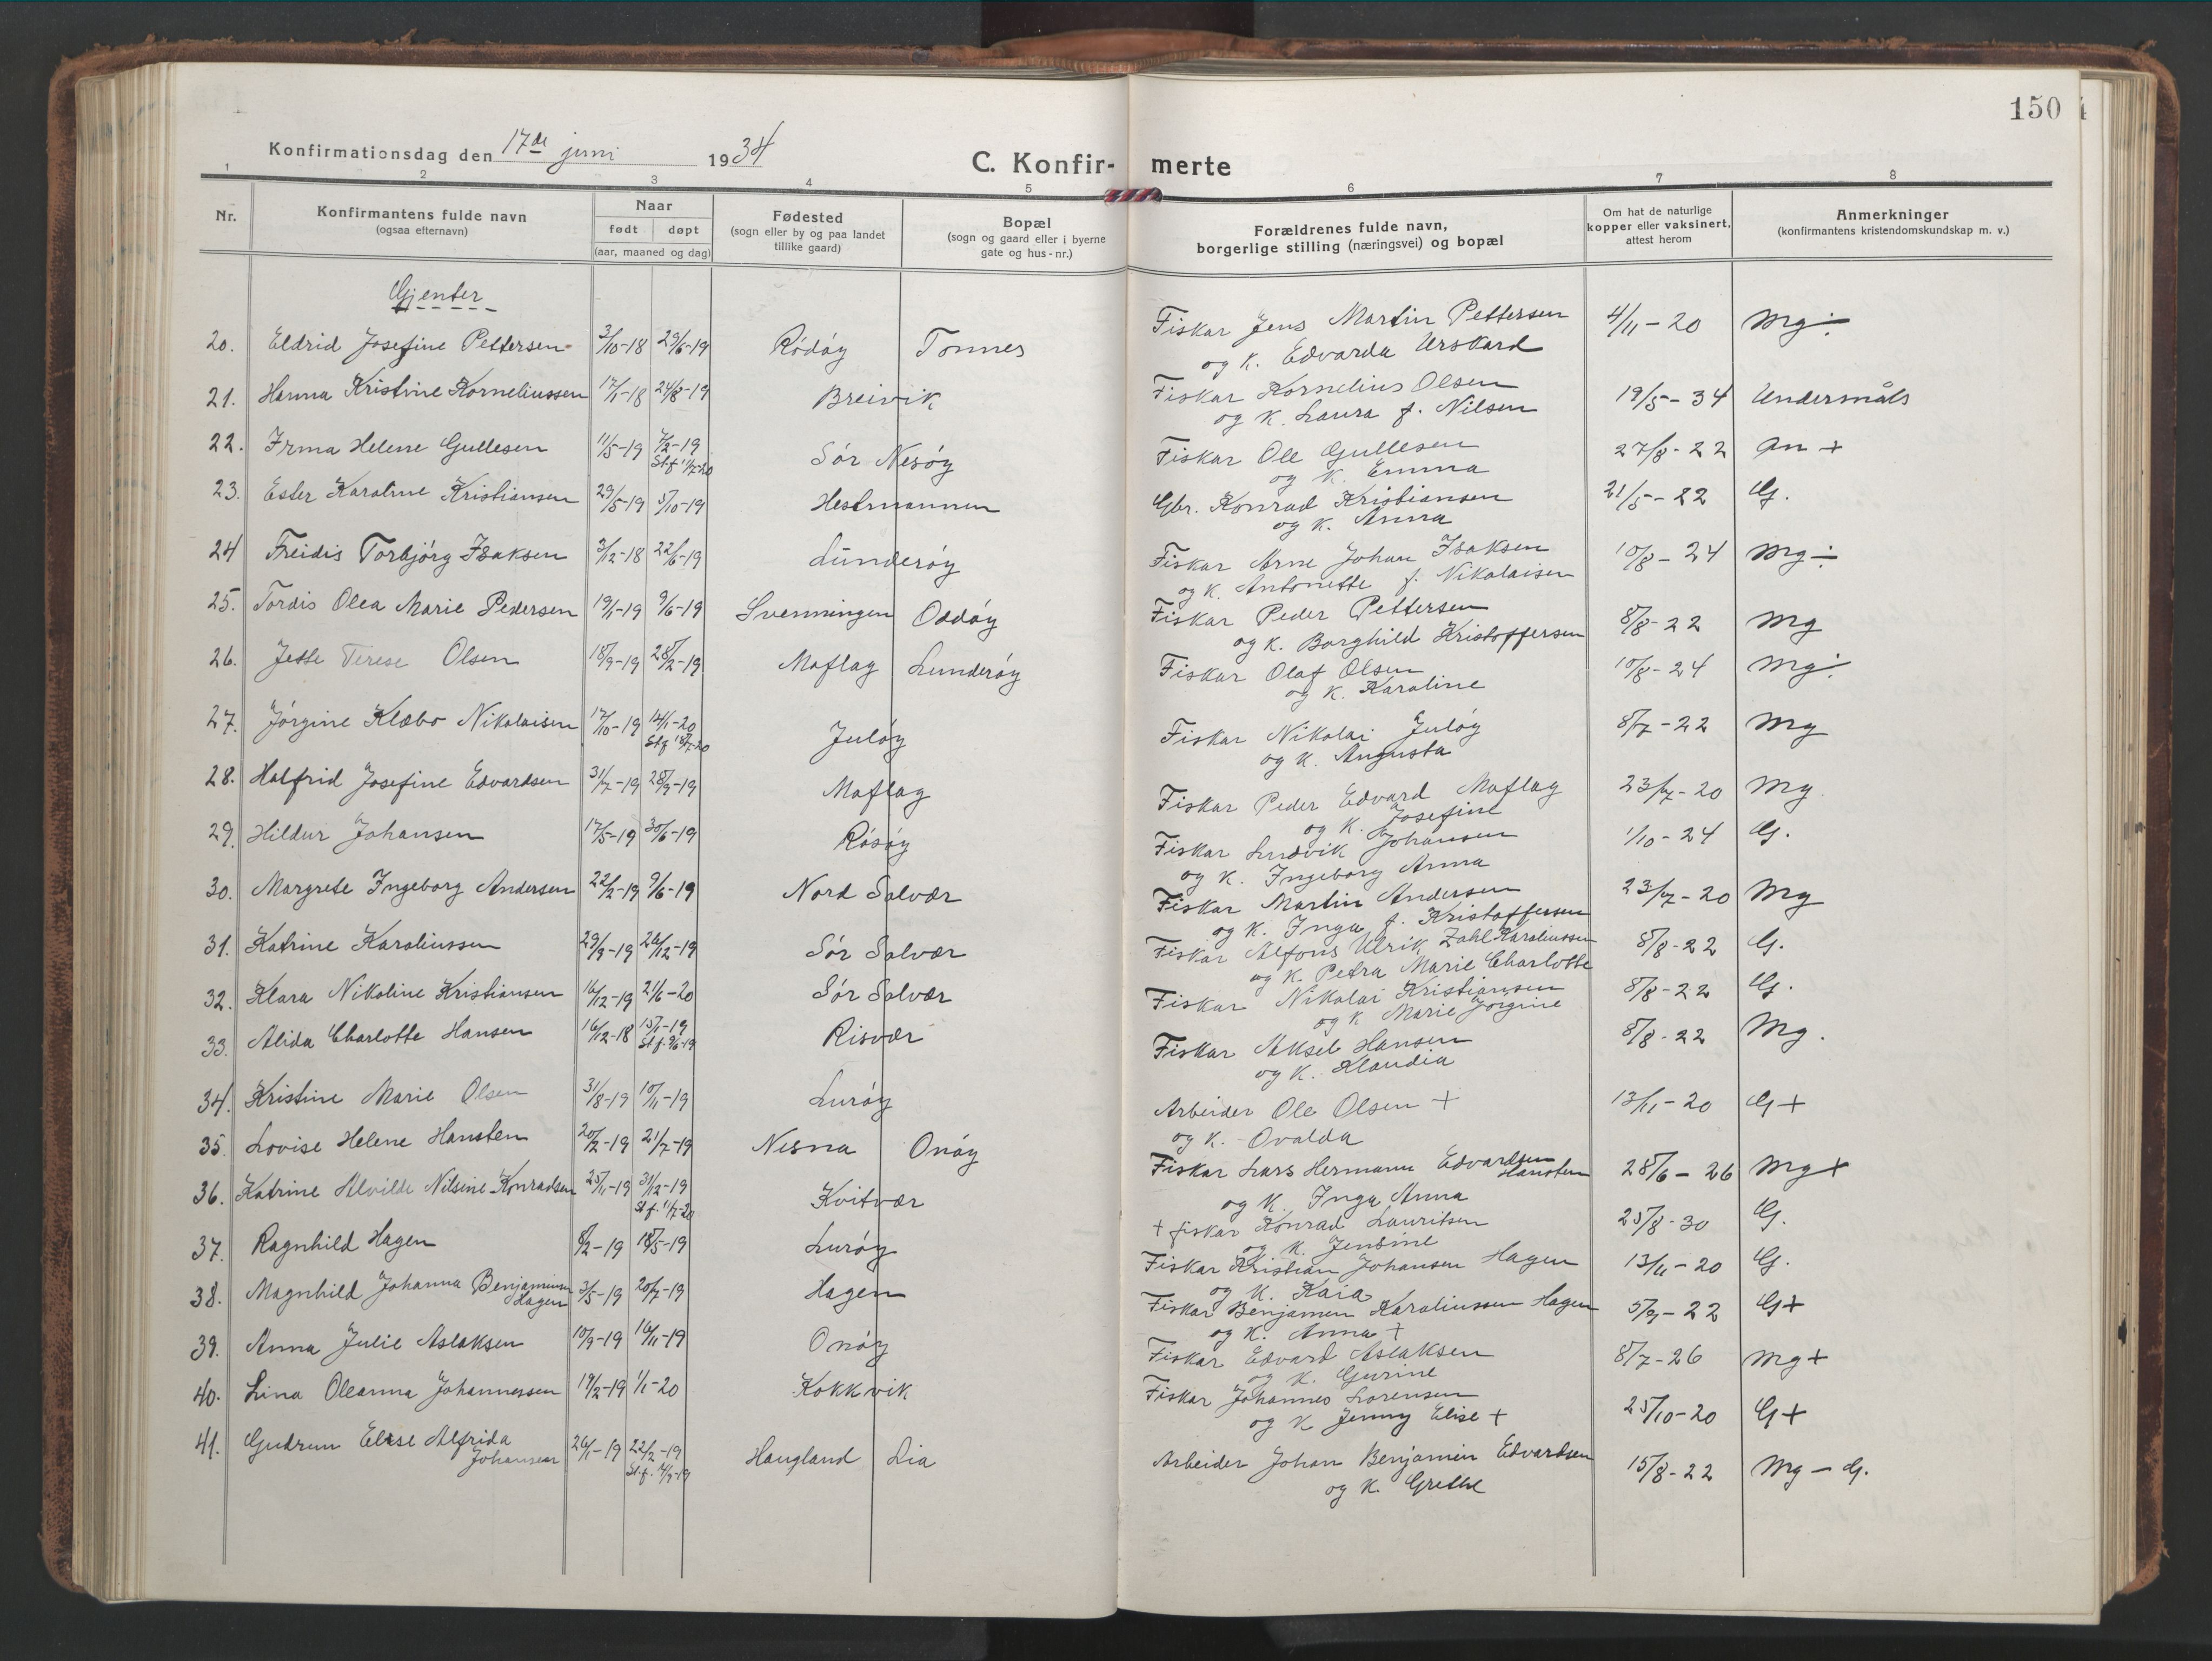 150
Konfirmationsdag den 17de juni 1934
C. Konfirmerte
1 2 3 4 5 6 7 8
Nr. | Konfirmantens fulde navn (ogsaa efternavn) | Naar født | døpt (aar, maaned og dag) | Fødested (sogn eller by og paa landet tillike gaard) | Bopæl (sogn og gaard eller i byerne gate og hus-nr.) | Forældrenes fulde navn, borgerlige stilling (næringsvei) og bopæl | Om hat de naturlige kopper eller vaksinert, attest herom | Anmerkninger (konfirmantens kristendomskundskap m. v.)
Gjenter
20. Eldrid Josefine Pettersen 3/10-18 29/6-19 Rödöy Tonnes Fiskar Jens Martin Pettersen og k. Edvarda Urskard 4/11-20 Mg ÷
21. Hanna Kristine Korneliussen 17/1-18 24/8-19 Breivik Fiskar Kornelius Olsen og k. Laura f. Nilsen 19/5-34 Undermåls
22. Irma Helene Gullesen 11/5-19 7/2-19 St.f. 11/7-20 Sör Nesöy Fiskar Ole Gullesen og k. Emma 27/8-22 +
23. Ester Karoline Kristiansen 29/5-19 5/10-19 Hestmannen Gbr. Konrad Kristiansen og k. Anna 21/5-22 G.
24 Freidis Torbjörg Isaksen 3/12-18 22/6-19 Lunderöy Fiskar Arne Johan Isaksen og k. Antonette f. Nikolaisen 10/8-24 Mg ÷
25. Tordis Olea Marie Pedersen 19/1-19 9/6-19 Svenningen Oddöy Fiskar Peder Pettersen og k. Borghild Kristoffersen 8/8-22 Mg
26. Jette Terese Olsen 18/9-19 28/12-19 Moflag Lunderöy Fiskar Olaf Olsen og k. Karoline 10/8-24 Mg ÷
27. Jörgine Klæbo Nikolaisen 17/10-19 14/1-20 St.f. 18/7-20 Julöy Fiskar Nikolai Julöy og k. Augusta 8/7-22 Mg
28. Halfrid Josefine Edvardsen 31/7-19 28/9-19 Moflag Fiskar Peder Edvard Moflag og k. Josefine 23/7-20 Mg
29. Hildur Johansen 17/5-19 30/6-19 Rösöy Fiskar Ludvik Johansen og k. Ingeborg Anna 1/10-24 G.
30. Margrete Ingeborg Andersen 22/2-19 9/6-19 Nord Solvær Fiskar Martin Andersen og k. Inga f. Kristoffersen 23/7-20 Mg
31. Katrine Karoliussen 29/9-19 26/12-19 Sör Solvær Fiskar Alfons Ulrik Zahl Karoliussen og k. Petra Marie Charlotte 8/8-22 G.
32. Klara Nikoline Kristiansen 16/12-19 21/6-20 Sör Solvær Fiskar Nikolai Kristiansen og k Marie Jörgine 8/8-22 G.
33. Alida Charlotte Hansen 16/12-18 15/1-19 St.f. 9/6-19 Risvær Fiskar Aksel Hansen og k. Klaudia 8/8-22 Mg.
34. Kristine Marie Olsen 31/8-19 10/11-19 Luröy Arbeider Ole Olsen + og k. Ovalda 13/11-20 G +
35. Lovise Helene Hansten 20/2-19 21/7-19 Nesna Onöy Fiskar Lars Hermann Edvardsen Hansten og k. Inga Anna 28/6-26 Mg +
36. Katrine Alvilde Nilsine Konradsen 25/11-19 31/12-19 St.f. 11/7-20 Kvitvær + fiskar Konrad Lauritsen og k. Jensine 25/8-30 G.
37. Ragnhild Hagen 8/2-19 18/5-19 Luröy Fiskar Kristian Johansen Hagen og k. Kaia 13/11-20 G.
38. Magnhild Johanna Benjaminsen Hagen 3/5-19 20/7-19 Hagen Fiskar Benjamen Karoliussen Hagen og k. Anna + 5/9-22 G +
39. Anna Julie Aslaksen 10/9-19 16/11-19 Onöy Fiskar Edvard Aslaksen og k. Gurine 8/7-26 Mg +
40. Lina Oleanna Johannessen 19/2-19 1/1-20 Kokkvik Fiskar Johannes Lorensen og k Jenny Elise + 25/10-20 G +
41. Gudrun Elise Alfrida Johansen 26/1-19 22/2-19 Haugland Lia Arbeider Johan Benjamin Edvardsen og k. Grethe 15/8-22 Mg - G.